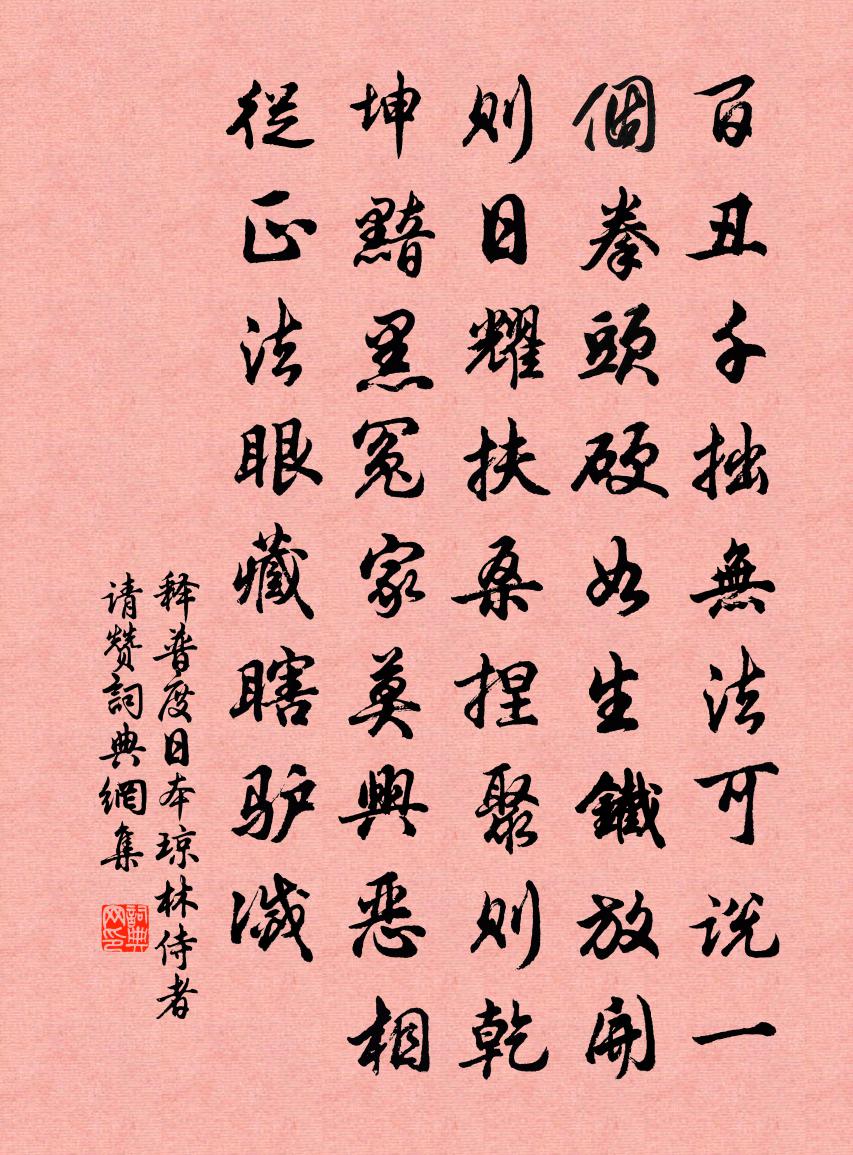 百丑千拙無法可说一
個拳頭硬如生鐵放開
則日耀扶桑捏聚則乾
坤黯黑冤家莫興恶相
從正法眼藏瞎驴滅
释普度日本琼林侍者
请赞詞典網集
詞典
网印